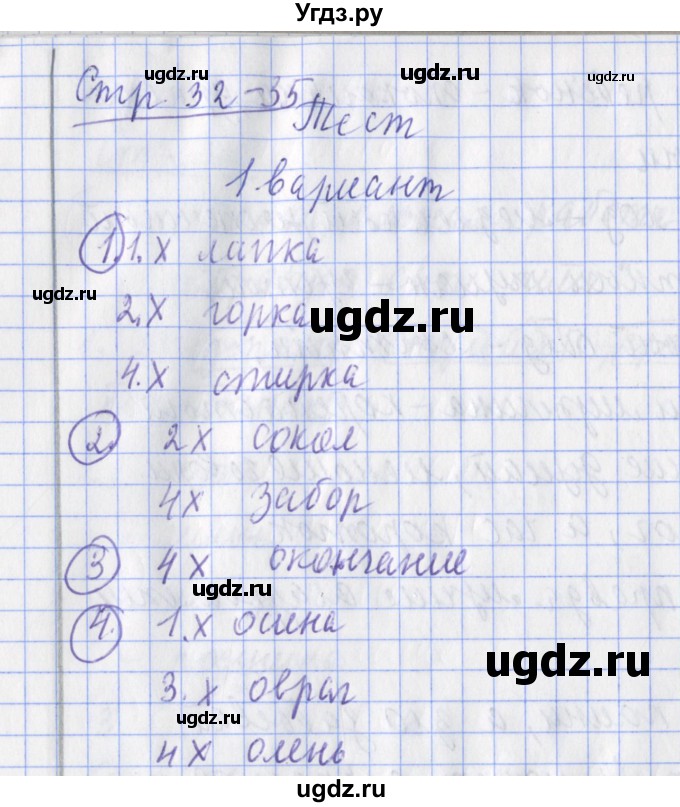 Угдз.ру
Стр. 32-35
ugdz.ru
ugdz.ru
Тест
1 вариант
1. 1. х лапка
ugdz.ru
ugdz.ru
2. х горка
ugdz.ru
4. х стирка
2. 2 х сокол
ugdz.ru
4 х забор
3 4 х окончание
ugdz.ru
4. 1. х осина
ugdz.ru
3. х овраг
ugdz.ru
4 х олень
ugdz.ru